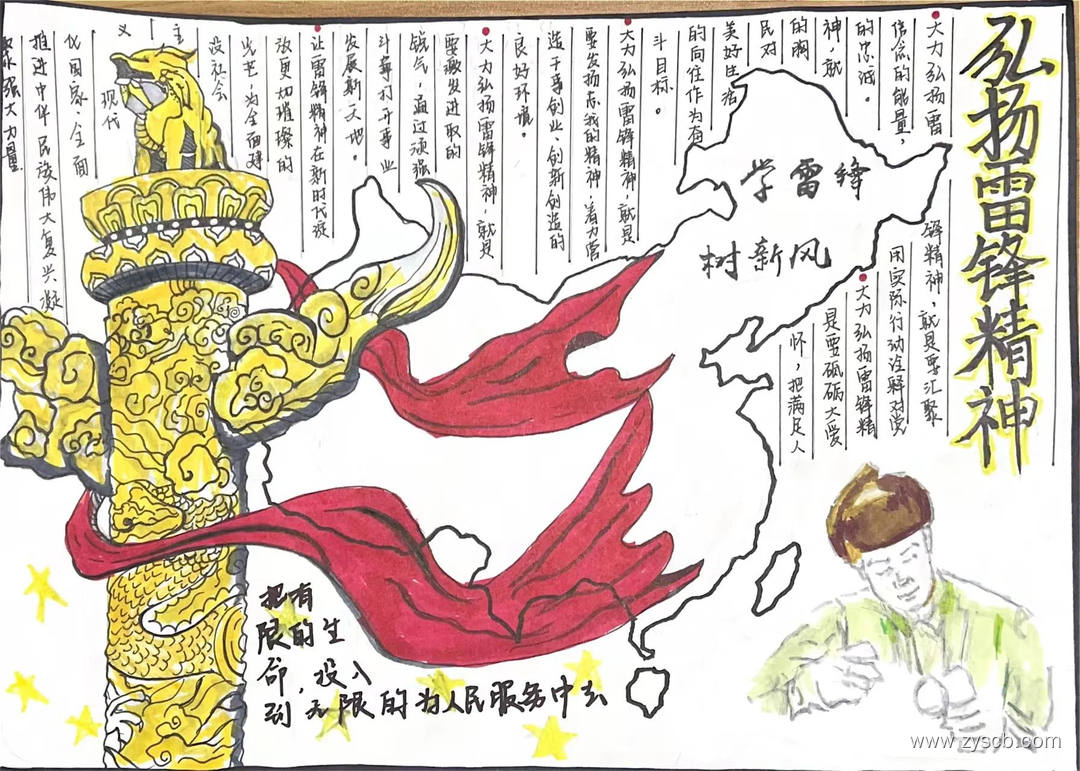 弘扬雷锋精神
大力弘扬雷
锋精神，就是要汇聚
信念的能量，
用实际行动诠释对党
的忠诚。
大力弘扬雷锋精
神，就
是要砥砺大爱
的胸
怀，把满足人
民对
美好生活
的向往作为奋
斗目标。
大力弘扬雷锋精神，就是
要发扬忘我的精神，着力营
造干事创业、创新创造的
良好环境。
大力弘扬雷锋精神，就是
要激发进取的
锐气，通过顽强
斗奉打开事业
发展新天地。
让雷锋精神在新时代绽
放更加璀璨的
光芒，为全面建
设社会
主
义
现代
化国家、全面
推进中华民族伟大复兴凝
聚强大力量
学雷锋
树新风
把有
限的生
命，投入
到无限的为人民服务中去
www.zyscb.com